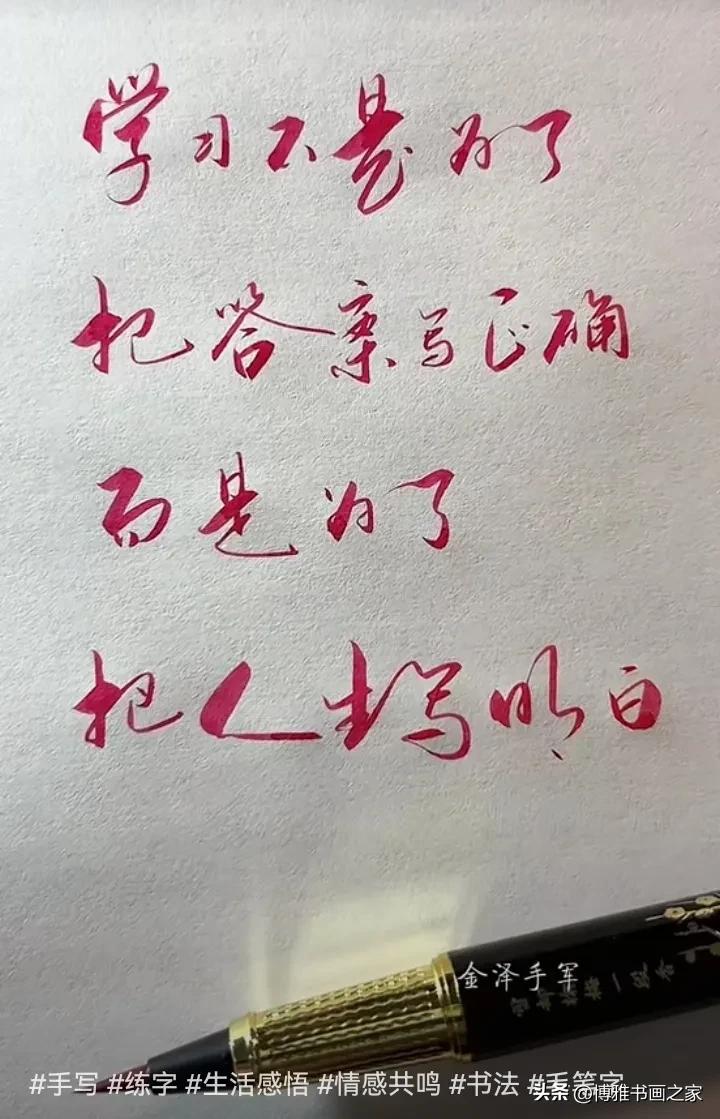 学习不是为了
把答案写正确
而是为了
把人生写明白
金泽手军
#手写 #练字 #生活感悟 #情感共鸣 #书法 #毛笔字
头条 @博雅书画之家